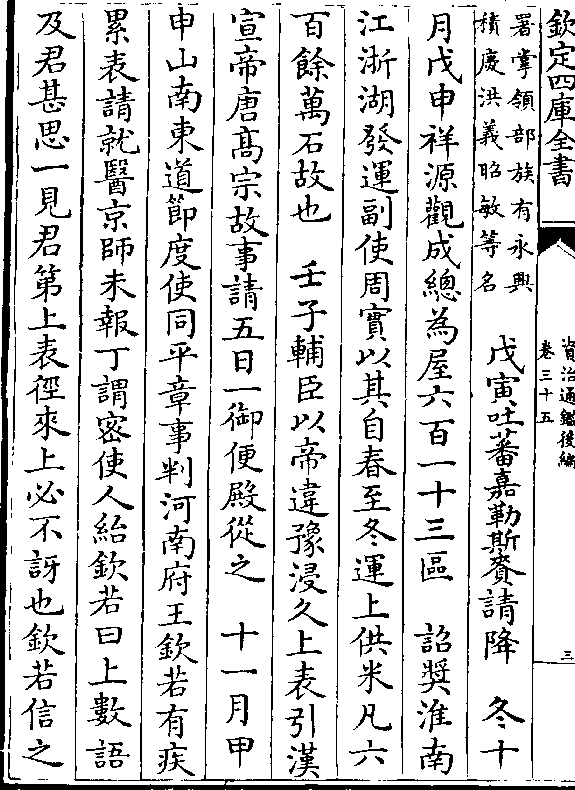 欽定四庫全書
資治通鑑後編
卷三十五
三
署掌領部族有永興
積慶洪義昭敏等名
戊寅吐蕃嘉勒斯賚請降　冬十
月戊申祥源觀成總為屋六百一十三區　詔奨淮南
江浙湖發運副使周實以其自春至冬運上供米凡六
百餘萬石故也　壬子輔臣以帝違豫浸久上表引漢
宣帝唐髙宗故事請五日一御便殿從之　十一月甲
申山南東道節度使同平章事判河南府王欽若有疾
累表請就醫京師未報丁謂宻使人紿欽若曰上數語
及君甚思一見君第上表徑來上必不訝也欽若信之